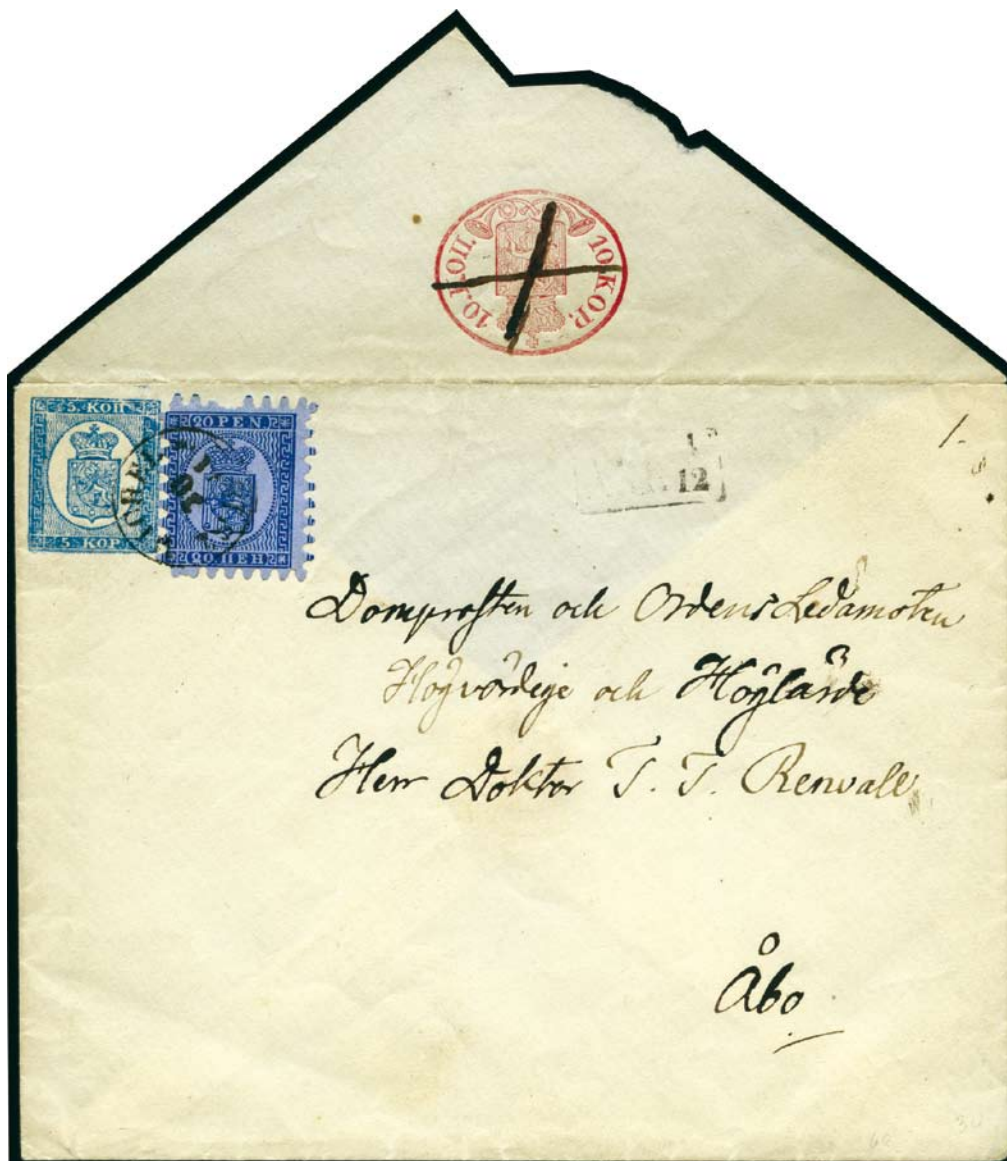 10.КОП. 10.KOP.
5. КОП
5. KOP.
20 PEN.
20. ПЕН
12
1.
Domprosten och Ordens Ledamoten
Högvördige och Höglärde
Herr Doktor T. T. Renvall
Åbo